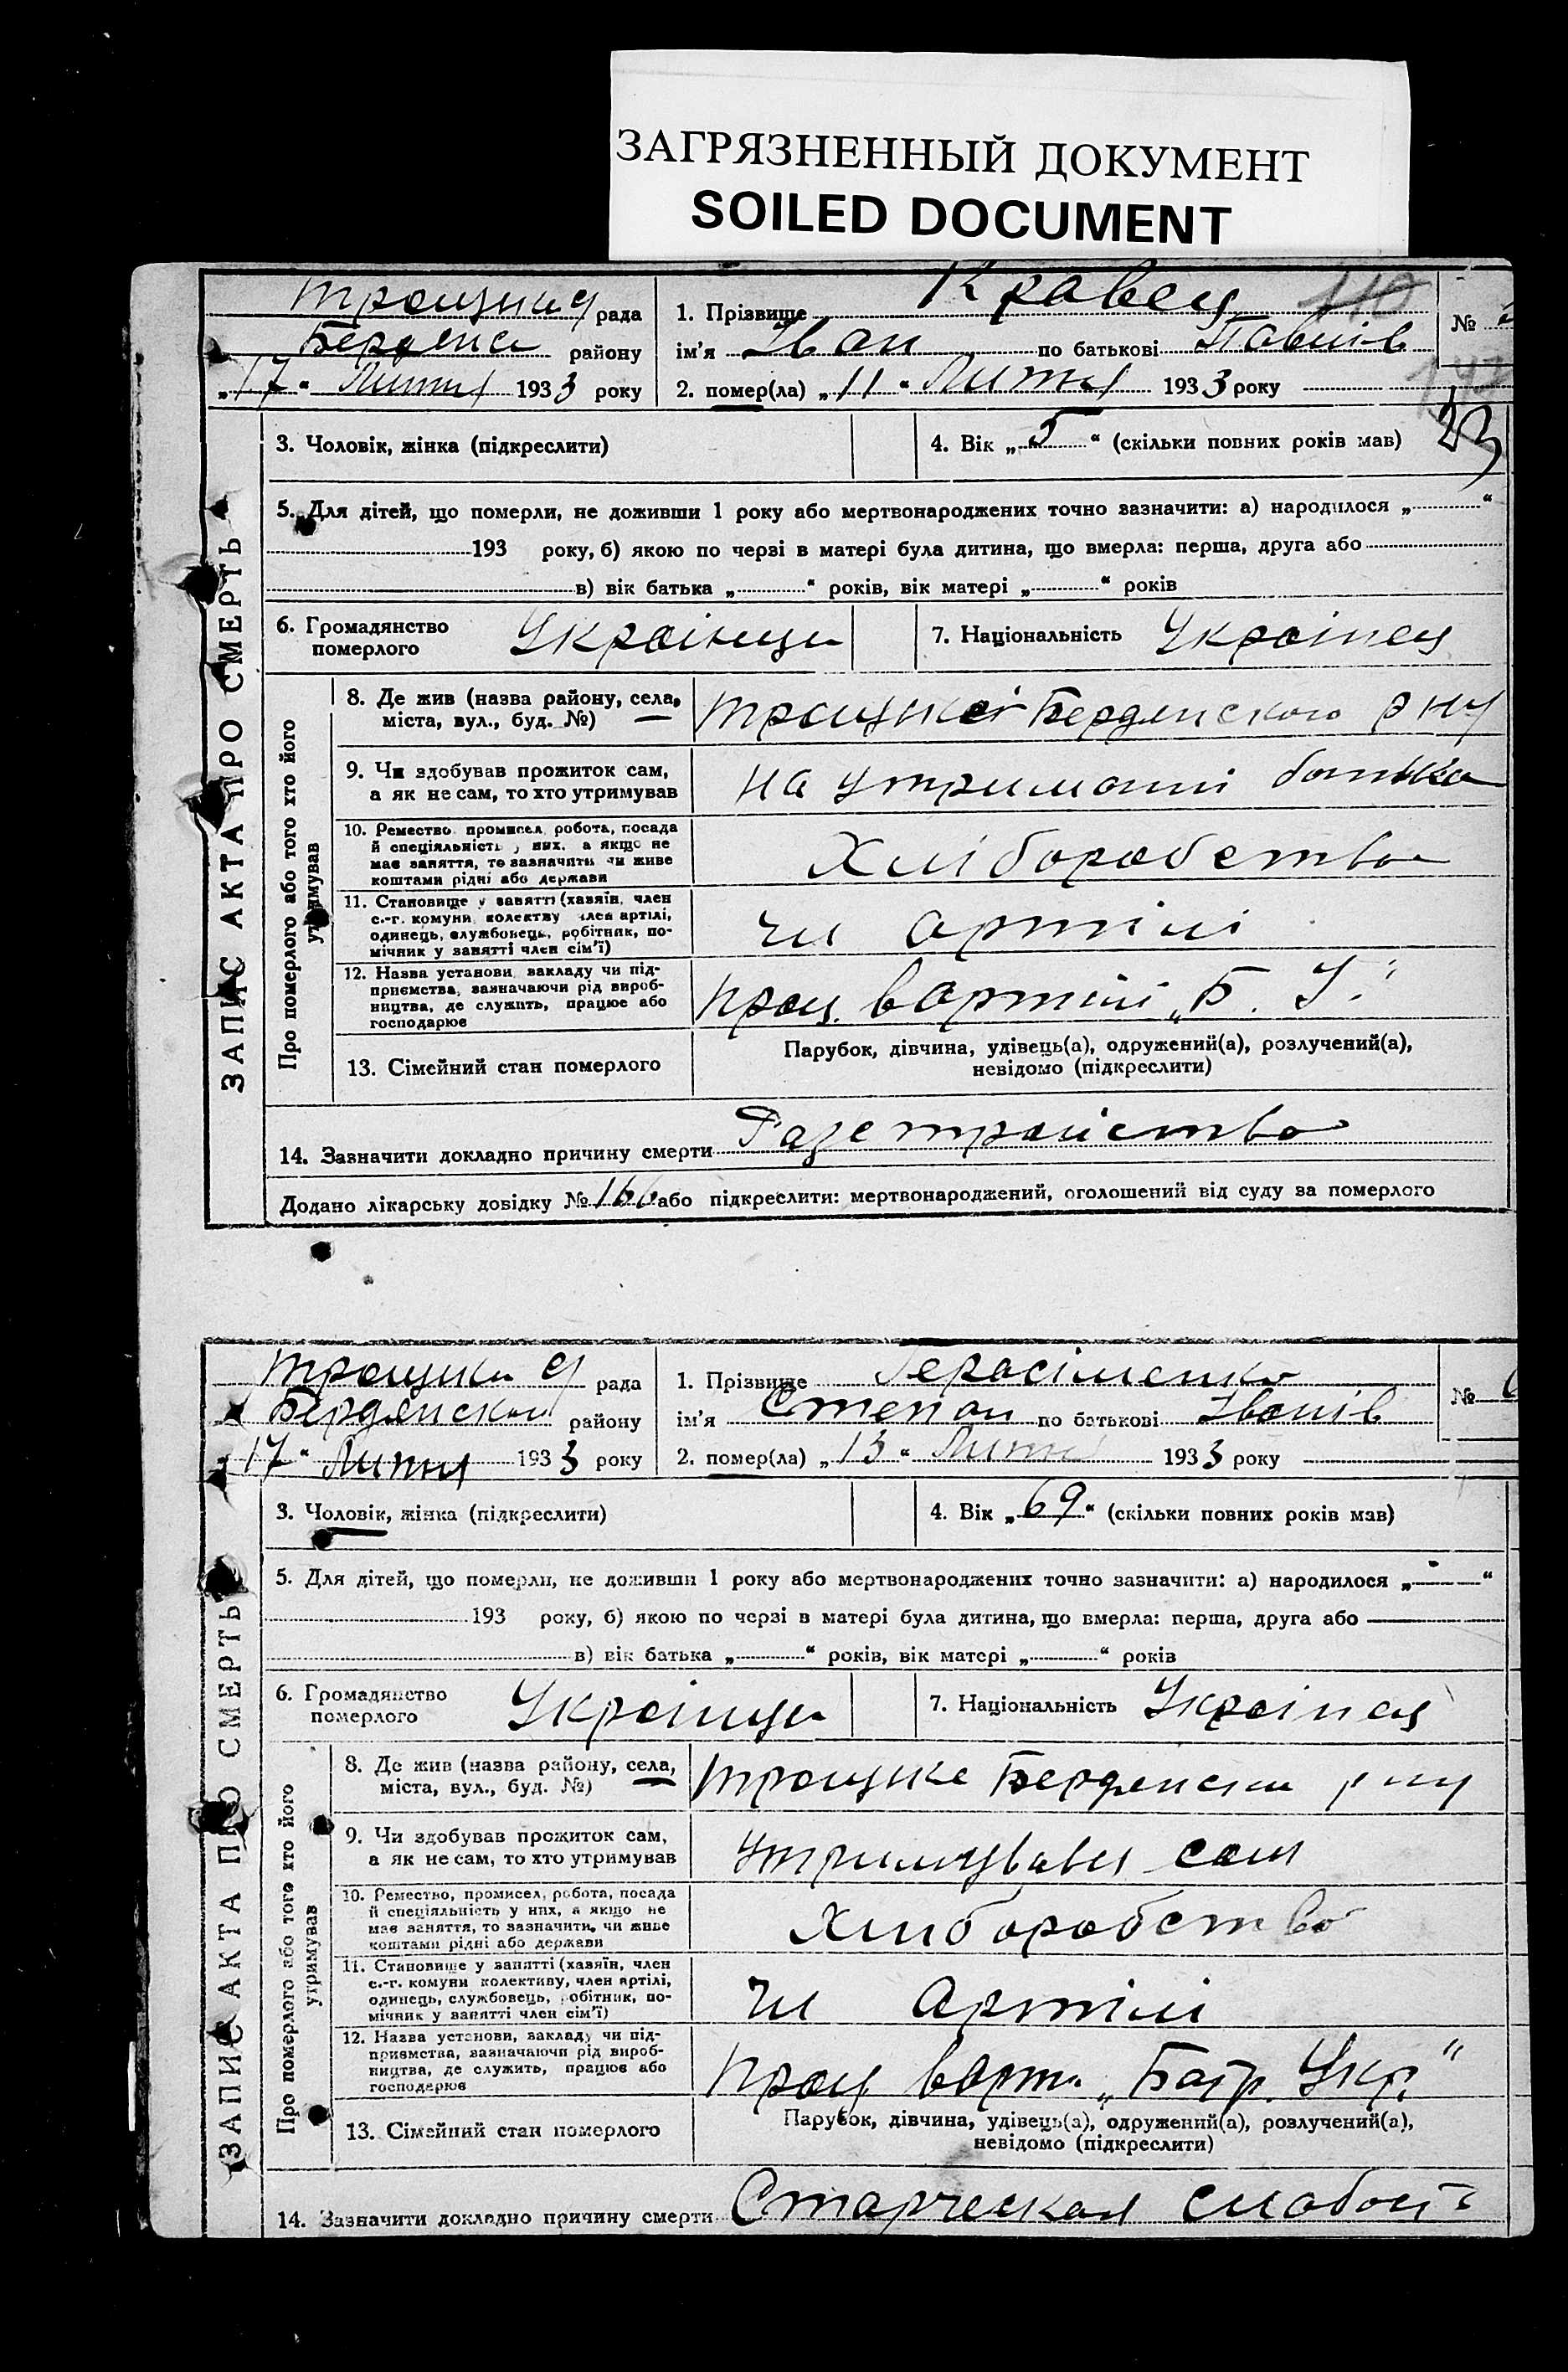 ЗАГРЯЗНЕННЫЙ ДОКУМЕНТ
SOILED DOCUMENT
ЗАПИС АКТА ПРО СМЕРТЬ
рада
району
„17“ 1933 року
1. Прізвище Кравец 110
ім'я Іван по батькові Павлів
2. помер(ла) „11“ Лютня 1933 року
№
23
3. Чоловік, жінка (підкреслити)
4. Вік „5“ (скільки повних років мав)
5. Для дітей, що померли, не доживши 1 року або мертвонароджених точно зазначити: а) народилося „ “
193 року, б) якою по черзі в матері була дитина, що вмерла: перша, друга або
в) вік батька „ “ років, вік матері „ “ років
6. Громадянство
померлого
Україньци
7. Національність Українец
Про померлого або того хто його
утримував
8. Де жив (назва району, села,
міста, вул., буд. №)
Троицкеі Бердянского р ну
9. Чи здобував прожиток сам,
а як не сам, то хто утримував
на утриманні батька
10. Ремество промисел, робота, посада
й спеціяльність у них, а якщо не
має заняття, то зазначити чи живе
коштами рідні або держави
Хліборобство
11. Становище у занятті (хазяїн, член
с.-г. комуни колективу член артілі,
одинець, службовець, робітник, по-
мічник у занятті член сім'ї)
чл артілі
12. Назва установи закладу чи під-
приємства, зазначаючи рід вироб-
ництва, де служить, працює або
господарює
прац. в артілі „Б. У.“
13. Сімейний стан померлого
Парубок, дівчина, удівець(а), одружений(а), розлучений(а),
невідомо (підкреслити)
14. Зазначити докладно причину смерти Разстройство
Додано лікарську довідку № 166 або підкреслити: мертвонароджений, оголошений від суду за померлого
ЗАПИС АКТА ПРО СМЕРТЬ
рада
Бердянском району
„17“ Лютня 1933 року
1. Прізвище Герасіменко
ім'я Степан по батькові Іванів
2. помер(ла) „13“ Лютня 1933 року
№
3. Чоловік, жінка (підкреслити)
4. Вік „69“ (скільки повних років мав)
5. Для дітей, що померли, не доживши 1 року або мертвонароджених точно зазначити: а) народилося „ “
193 року, б) якою по черзі в матері була дитина, що вмерла: перша, друга або
в) вік батька „ “ років, вік матері „ “ років
6. Громадянство
померлого
Україньци
7. Національність Українец
Про померлого або того хто його
утримував
8. Де жив (назва району, села,
міста, вул., буд. №)
Троицке Бердянски р ну
9. Чи здобував прожиток сам,
а як не сам, то хто утримував
утримувався сам
10. Ремество, промисел, робота, посада
й спеціяльність у них, а якщо не
має заняття, то зазначити, чи живе
коштами рідні або держави
Хліборобство
11. Становище у занятті (хазяїн, член
с.-г. комуни колективу, член артілі,
одинець, службовець, робітник, по-
мічник у занятті член сім'ї)
чл артілі
12. Назва установи, закладу чи під-
приємства, зазначаючи рід вироб-
ництва, де служить, працює або
господарює
прац в арт. „Багр. Укр.“
13. Сімейний стан померлого
Парубок, дівчина, удівець(а), одружений(а), розлучений(а),
невідомо (підкреслити)
14. Зазначити докладно причину смерти Старческая слабость